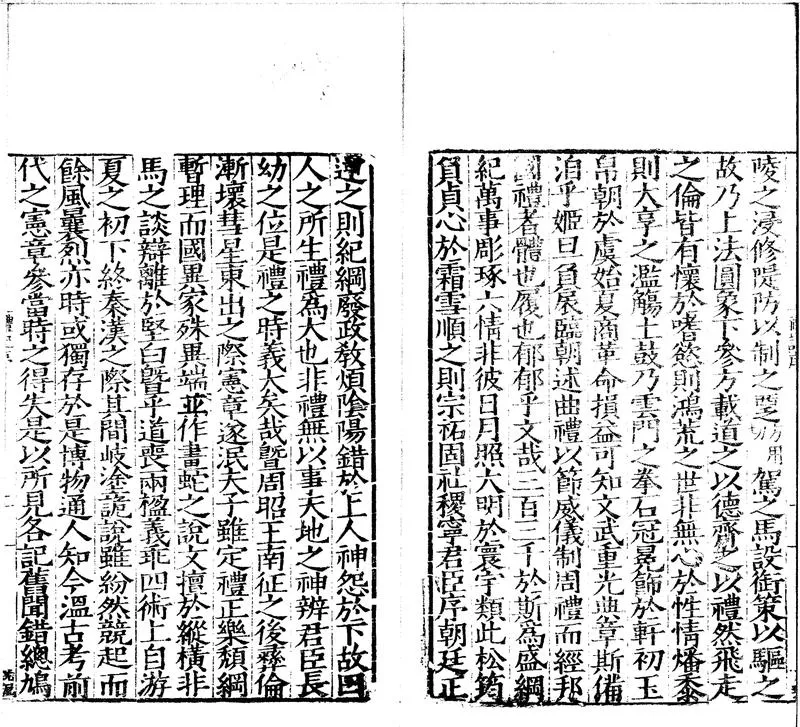 陵之浸修隄防以制之覂方用駕之馬設銜策以驅之
故乃上法圓象下參方載道之以德齊之以禮然飛走
之倫皆有懷於嗜慾則鴻荒之世非無心於性情燔黍
則大亨之濫觴土鼓乃雲門之拳石冠冕飾於軒初玉
帛朝於虞始夏商革命損益可知文武重光典章斯備
洎乎姬旦負扆臨朝述曲禮以節威儀制周禮而經邦
國禮者體也履也郁郁乎文哉三百三千於斯爲盛綱
紀萬事彫琢六情非彼日月照大明於寰宇類此松筠
負貞心於霜雪順之則宗祏固社稷寧君臣序朝廷正
逆之則紀綱廢政敎煩陰陽錯於上人神怨於下故曰
人之所生禮爲大也非禮無以事天地之神辨君臣長
幼之位是禮之時義大矣哉暨周昭王南征之後彝倫
漸壞彗星東出之際憲章遂泯夫子雖定禮正樂頹綱
暫理而國異家殊異端並作畫蛇之說文擅於縱橫非
馬之談辯離於堅白暨乎道喪兩楹義乖四術上自游
夏之初下終秦漢之際其間岐塗詭說雖紛然競起而
餘風曩烈亦時或獨存於是博物通人知今溫古考前
代之憲章參當時之得失是以所見各記舊聞錯總鳩